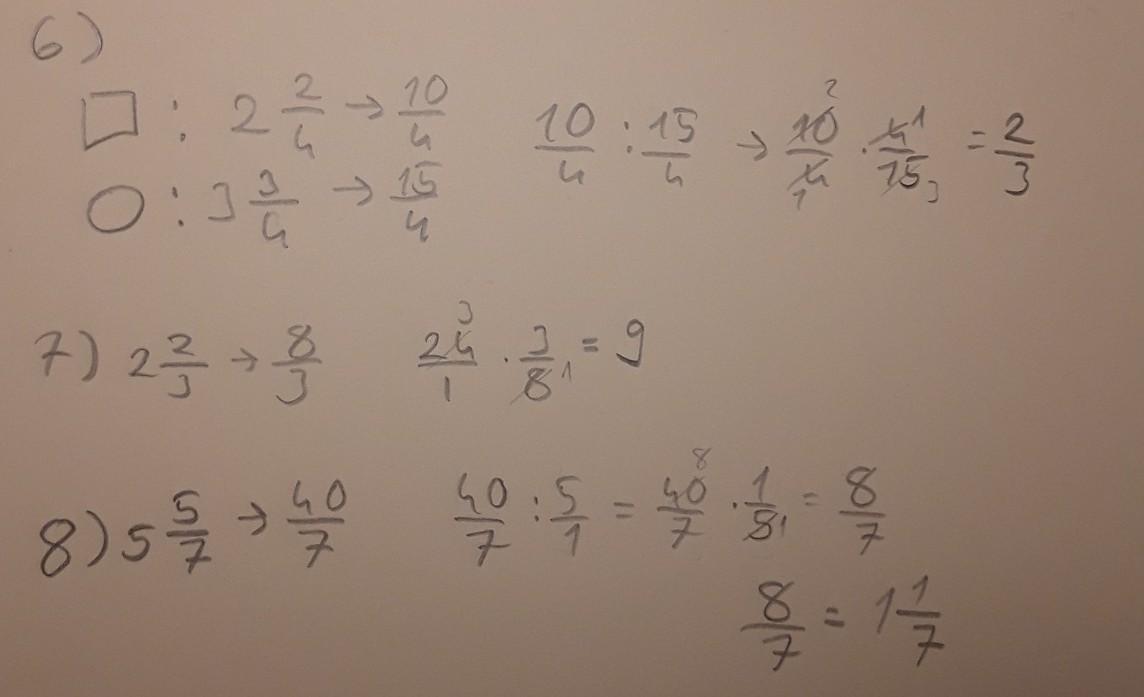 6)
□ : 2 2/4 → 10/4   10/4 : 15/4 → 10/4 2 1 · 4/15 1 3 = 2/3
○ : 3 3/4 → 15/4
7) 2 2/3 → 8/3   24/1 3 · 3/8 1 = 9
8) 5 5/7 → 40/7   40/7 : 5/1 = 40/7 8 · 1/5 1 = 8/7
8/7 = 1 1/7